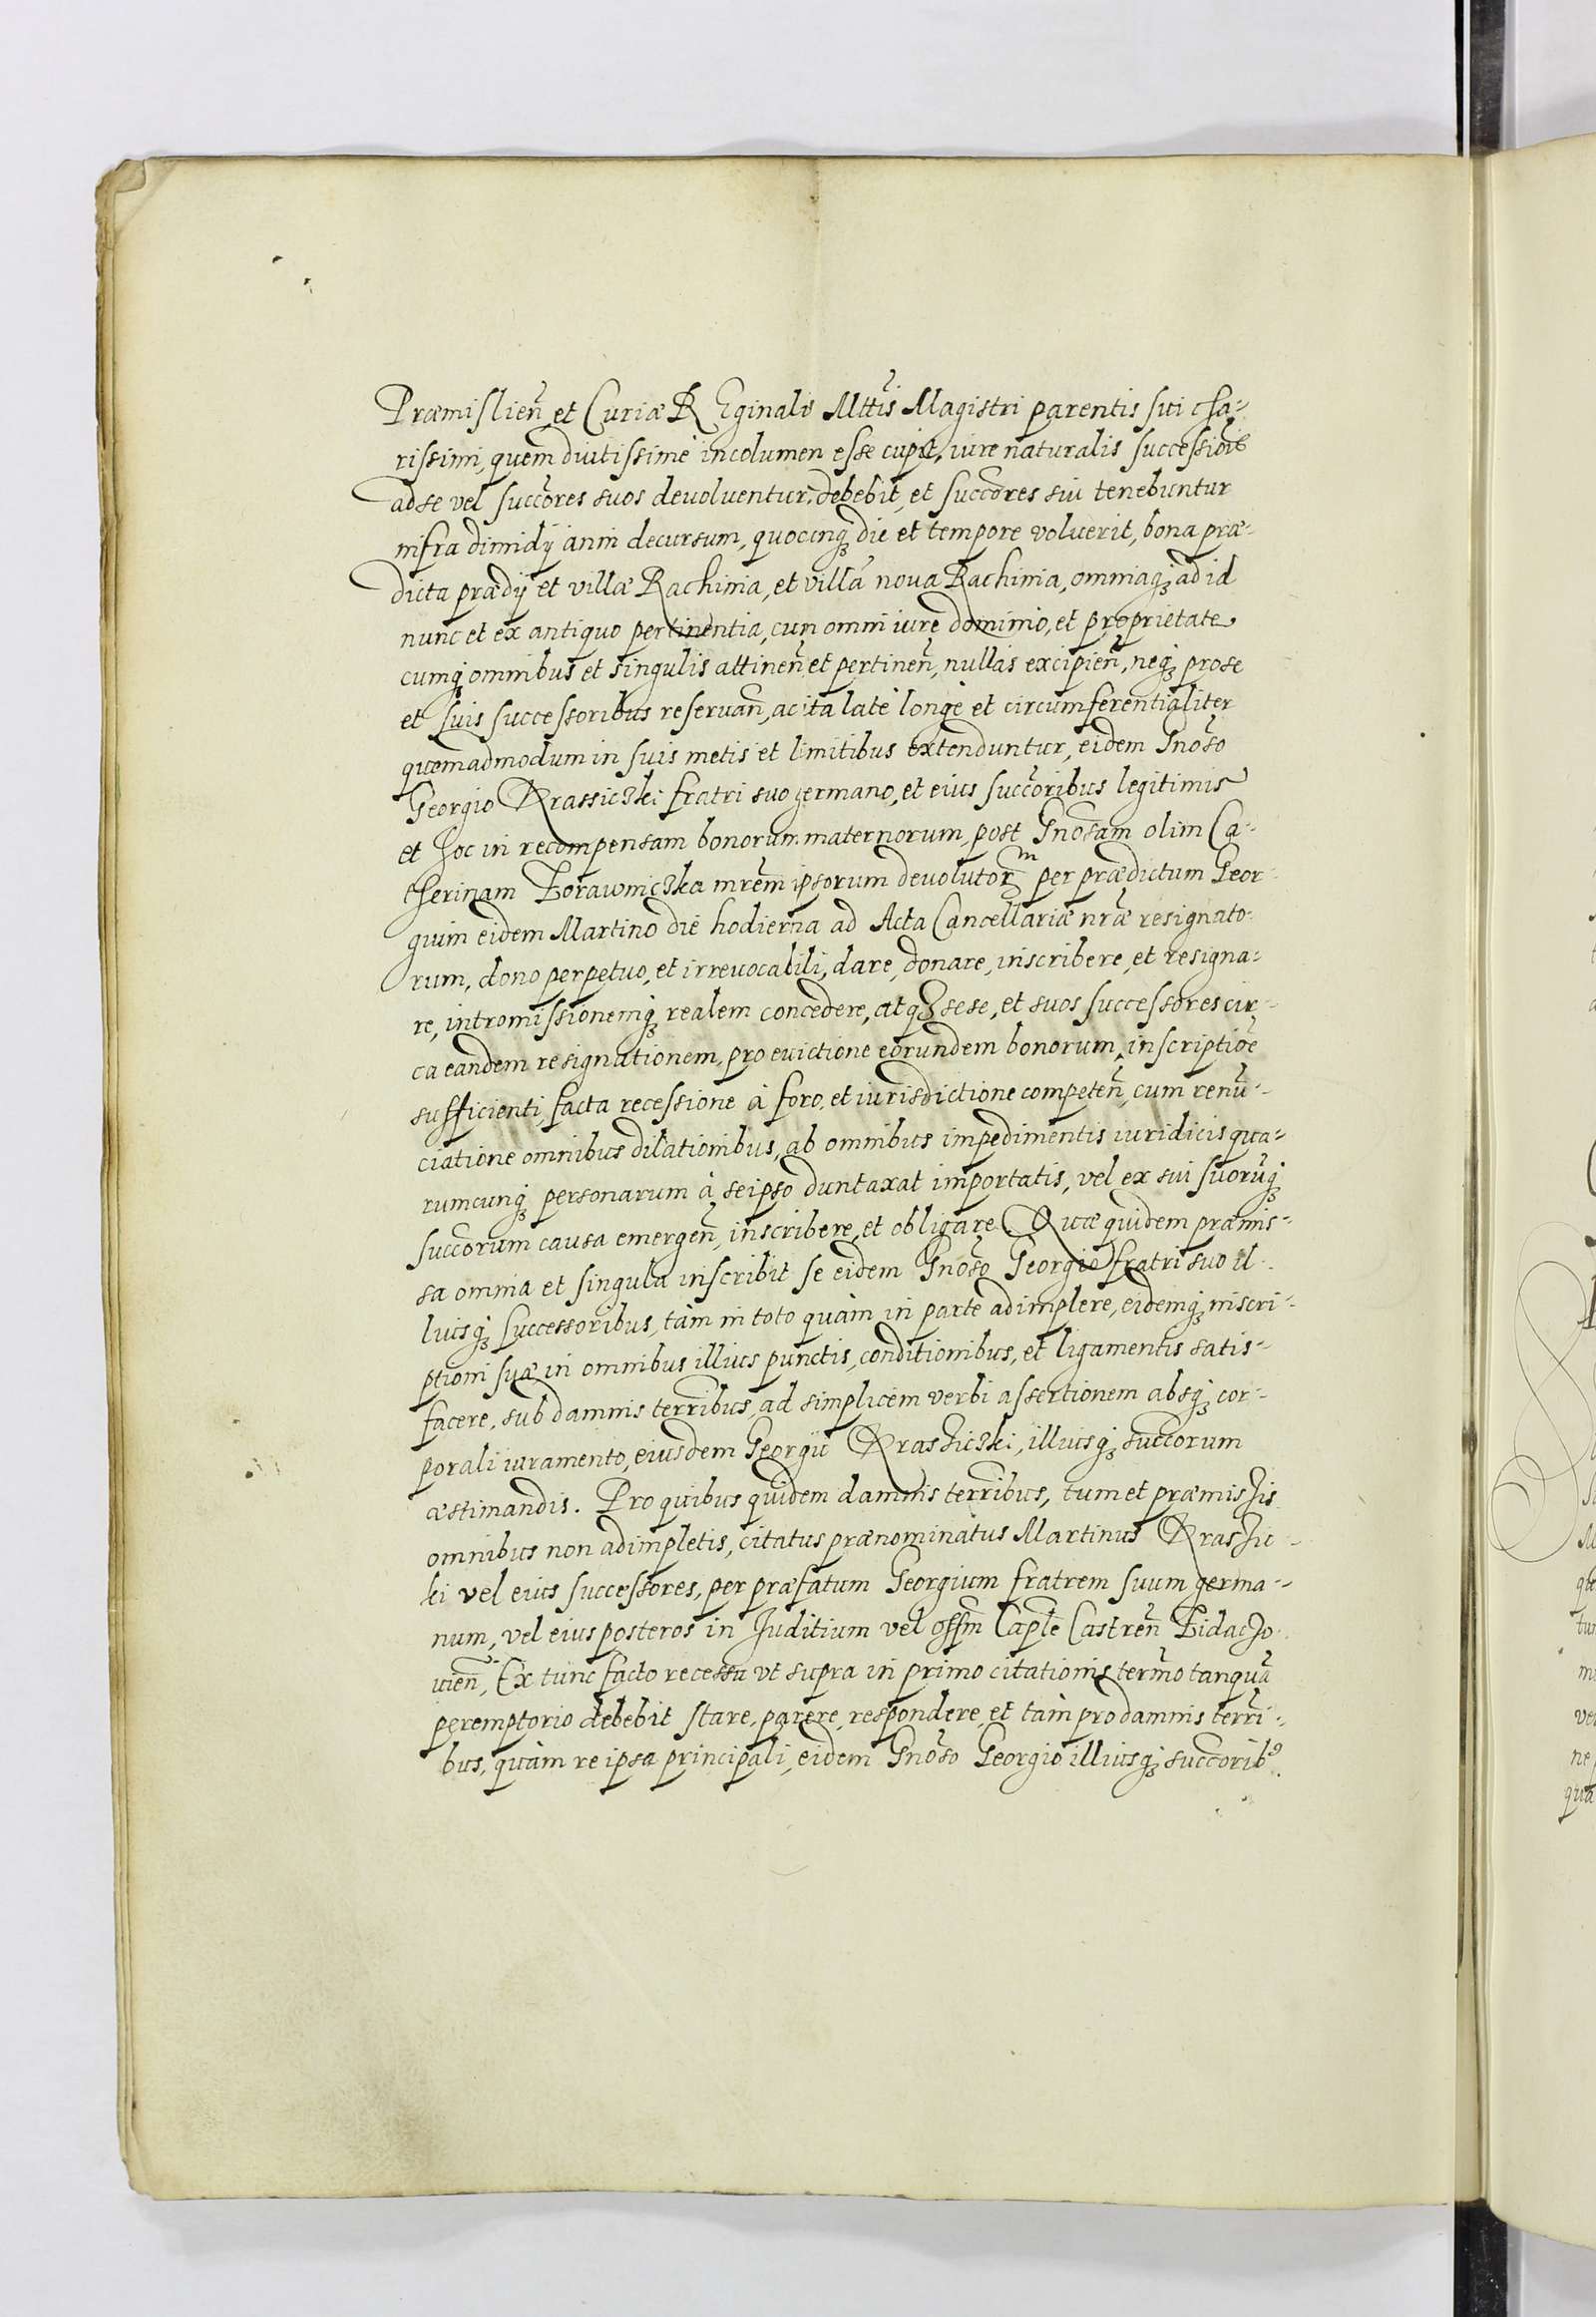 Præmislien̄ et Curiæ REginalis Mttis Magistri parentis sui cha-
rissimi, quem diutissimè incolumen esse cupit, iure naturalis successiōis
ad se vel succōres suos devoluentur, debebit, et succōres sui tenebuntur
infra dimidij anni decursum, quocunq; die et tempore voluerit, bona præ-
dicta prædij et villæ Rachinia, et villā noua Rachinia, omniaq; ad id
nunc et ex antiquo pertinentia, cum omni iure dominio, et proprietate
cumq; omnibus et singulis attinen̄ et pertinen̄, nullis excipien̄, neq; pro se
et suis successoribus reseruan̄, ac ita latè longè et circumferentialiter
quemadmodum in suis metis et limitibus extenduntur, eidem Gnōso
Georgio Krassiczki fratri suo germano, et eius succōribus legitimis
et hoc in recompensam bonorum maternorum, post Gnōsam olim Ca-
therinam Borawniczka mrēm ipsorum devolutorm per prædictum Geor-
gium eidem Martino die hodierna ad Acta Cancellariæ nrǣ resignato-
rum, dono perpetuo, et irreuocabili, dare, donare, inscribere, et resigna-
re, intromissionemq; realem concedere, atq; sese, et suos successores cir-
ca eandem resignationem, pro euictione eorundem bonorum, inscriptiōe
sufficienti, facta recessione à foro, et iurisdictione competen̄, cum renū-
ciatione omnibus dilationibus, ab omnibus impedimentis iuridicis qua-
rumcunq; personarum à seipso duntaxat importatis, vel ex sui suorūq;
succōrum causa emergen̄, inscribere, et obligare. Quæ quidem præmis-
sa omnia et singula inscribit se eidem Gnōso Georgio fratri suo il-
luisq; successoribus, tàm in toto quàm in parte adimplere, eidemq; inscri-
ptioni suæ in omnibus illius punctis, conditionibus, et ligamentis satis-
facere, sub damnis terrībus, ad simplicem verbi assertionem absq; cor-
porali iuramento, eiusdem Georgii Krashiczki, illiusq; succōrum
æstimandis. Pro quibus quidem damnis terrībus, tum et præmissis
omnibus non adimpletis, citatus prænominatus Martinus Krashic-
ki vel eius successores, per præfatum Georgium fratrem suum germa-
num, vel eius posteros in Juditium vel offm Caplē Castren̄ Zidacho-
uien̄, Ex tunc facto recessu vt supra in primo citationis termo tanquā
peremptorio debebit stare, parere, respondere, et tàm pro damnis terrī-
bus, quàm re ipsa principali, eidem Gnōso Georgio illiusq; succōrib9.